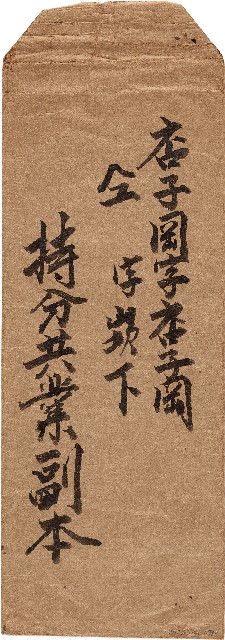 杏子岡字杏子岡
仝 字嶺下
持分共業副本